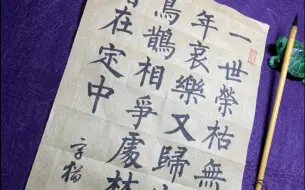 一世榮枯無
年哀樂又歸
鳥鵲相爭處林
在定中